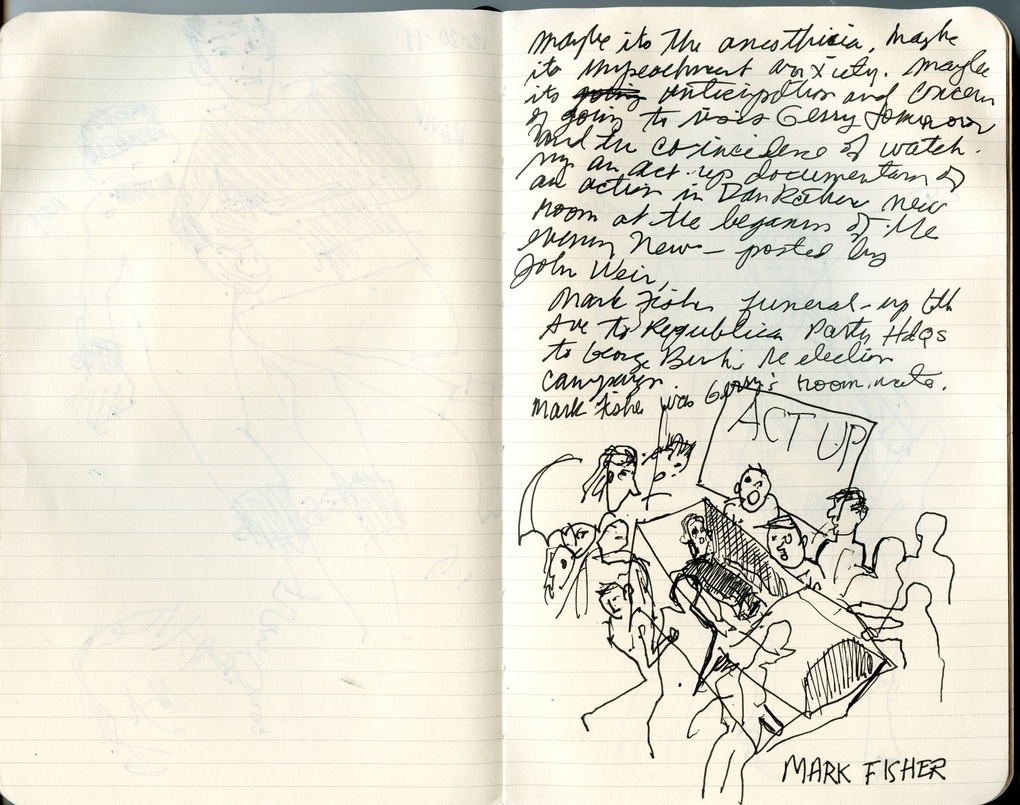 maybe its the anesthisia, maybe
its impeachment anxiety. maybe
its going anticipation and concern
of going to Gerry tomorrow
and the coincidence of watch-
ing an act-up documentary of
an action in Dan Rather news
room at the begann of the
evening News - posted by
John Weir,
Mark Fisher funeral - up 6th
Ave to Republica Party HdQs
to George Bush's re election
campaign.
Mark Fisher was Gerry's room mate.
ACT UP
MARK FISHER